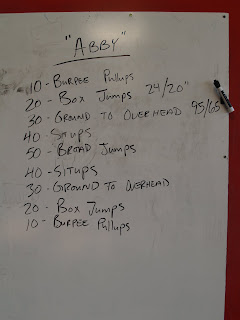 "ABBY"
10 - BURPEE PULLUPS
20 - BOX JUMPS 24/20"
30 - GROUND TO OVERHEAD 95/65
40 - SITUPS
50 - BROAD JUMPS
40 - SITUPS
30 - GROUND TO OVERHEAD
20 - BOX JUMPS
10 - BURPEE PULLUPS